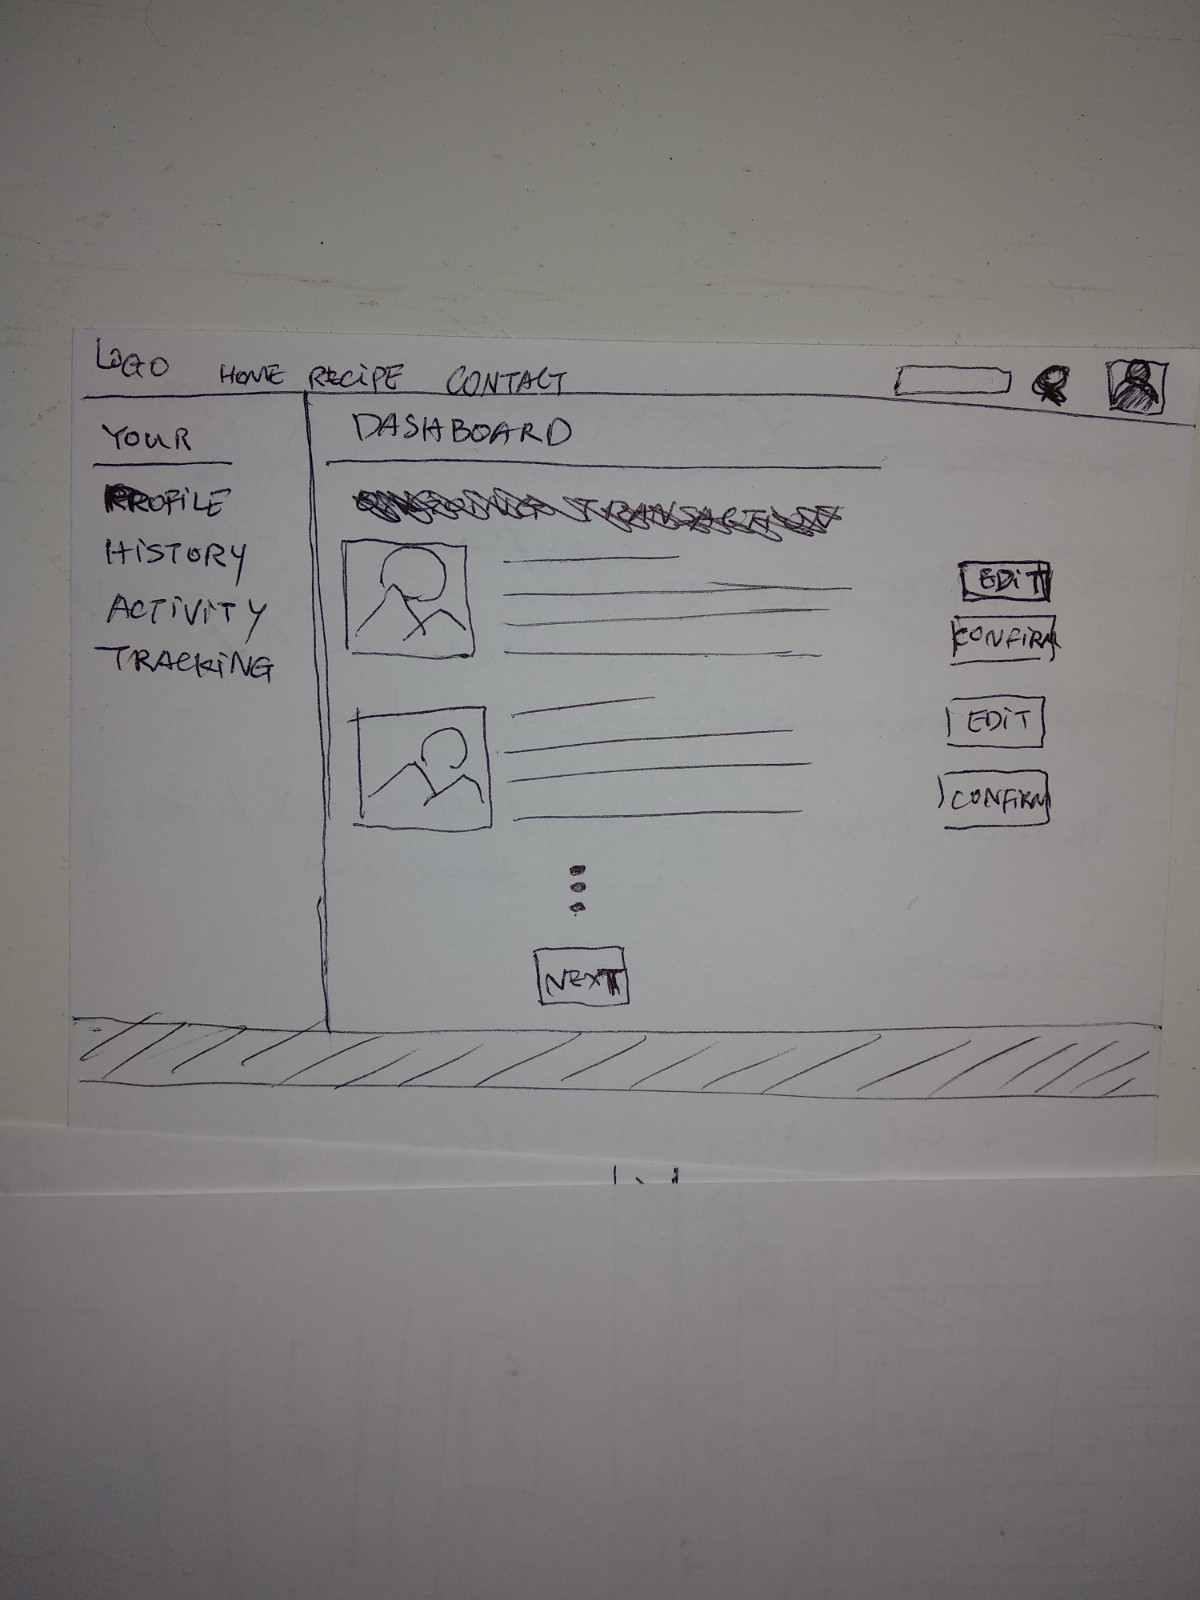 LOGO HOME RECIPE CONTACT
YOUR
PROFILE
HISTORY
ACTIVITY
TRACKING
DASHBOARD
ONGOING TRANSACTION
EDIT
CONFIRM
EDIT
CONFIRM
NEXT